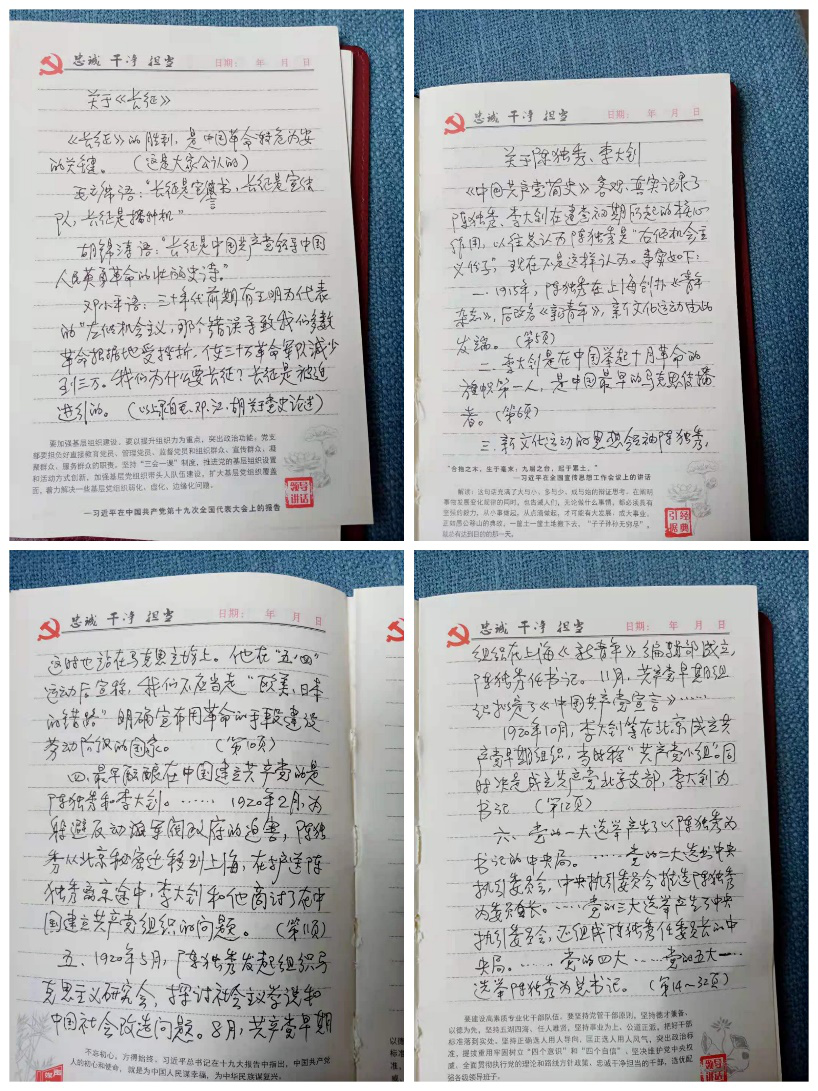 忠诚 干净 担当
日期： 年 月 日
关于《长征》
《长征》的胜利，是中国革命转危为安
的关键。（这是大家公认的）
毛主席语："长征是宣言书，长征是宣传
队，长征是播种机"
胡锦涛语："长征是中国共产党领导中国
人民英勇革命的壮丽史诗。"
邓小平语：三十年代前期有王明为代表
的"左倾机会主义，那个错误导致我们多数
革命根据地受挫折，使三十万革命军队减少
到三万。我们为什么要长征？长征是被迫
进行的。（以上录自毛.邓.江.胡关于党史论述）
要加强基层组织建设，要以提升组织力为重点，突出政治功能，党支
部要担负好直接教育党员、管理党员、监督党员和组织群众、宣传群众、凝
聚群众、服务群众的职责，坚持"三会一课"制度，推进党的基层组织设置
和活动方式创新，加强基层党组织带头人队伍建设，扩大基层党组织覆盖
面，着力解决一些基层党组织弱化、虚化、边缘化问题。
—习近平在中国共产党第十九次全国代表大会上的报告
领导
讲话
忠诚 干净 担当
日期： 年 月 日
关于陈独秀、李大钊
《中国共产党简史》客观、真实记录了
陈独秀、李大钊在建党初期所起的核心
作用，以往总认为陈独秀是"右倾机会主
义份子"，现在不是这样认为。事实如下：
一、1915年，陈独秀在上海创办《青年
杂志》，后改名《新青年》，新文化运动由此
发端。（第5页）
二、李大钊是在中国举起十月革命的
旗帜第一人，是中国最早的马克思传播
者。（第6页）
三、新文化运动的思想领袖陈独秀，
"合抱之木，生于毫末；九层之台，起于累土。"
—习近平在全国宣传思想工作会议上的讲话
解读：这句话充满了大与小、多与少、成与始的辩证思考，在阐明
事物发展变化规律的同时，也告诫人们，无论做什么事情，都必须具有
坚强的毅力，从小事做起，从点滴做起，才可能有大发展，成大事业。
正如愚公移山的典故，一筐土一筐土地搬下去，"子子孙孙无穷尽"，
就总有达到目的的那一天。
引经
据典
忠诚 干净 担当
日期： 年 月 日
这时也站在马克思主场上。他在"五·四"
运动后宣称，我们不应当走"欧美、日本
的错路"明确宣布用革命的手段建设
劳动阶级的国家。（第10页）
四、最早酝酿在中国建立共产党的是
陈独秀和李大钊。…… 1920年2月，为
躲避反动派军阀政府的迫害，陈独
秀从北京秘密迁移到上海，在护送陈
独秀离京途中，李大钊和他商讨了在中
国建立共产党组织的问题。（第11页）
五、1920年5月，陈独秀发起组织马
克思主义研究会，探讨社会主义学说和
中国社会改造问题。8月，共产党早期
不忘初心，方得始终。习近平总书记在十九大报告中指出，中国共产党
人的初心和使命，就是为中国人民谋幸福，为中华民族谋复兴。
忠诚 干净 担当
日期： 年 月 日
组织在上海《新青年》编辑部成立，
陈独秀任书记。11月，共产党早期组
织拟定了《中国共产党宣言》……
1920年10月，李大钊等在北京成立共
产党早期组织，当时称"共产党小组"。同
时决定成立共产党北京支部，李大钊为
书记（第12页）
六、党的一大选举产生了以陈独秀为
书记的中央局。……党的二大选出中央
执行委员会，中央执行委员会推选陈独秀
为委员长。……党的三大选举产生了中央
执行委员会，还组成陈独秀任委员长的中
央局。……党的四大……党的五大……
选举陈独秀为总书记。（第14～32页）
要建设高素质专业化干部队伍。要坚持党管干部原则，坚持德才兼备、
以德为先，坚持五湖四海、任人唯贤，坚持事业为上、公道正派，把好干部
标准落到实处。坚持正确选人用人导向，匡正选人用人风气，突出政治标
准，提拔重用牢固树立"四个意识"和"四个自信"、坚决维护党中央权
威、全面贯彻执行党的理论和路线方针政策、忠诚干净担当的干部，选优配
强各级领导班子。
领导
讲话